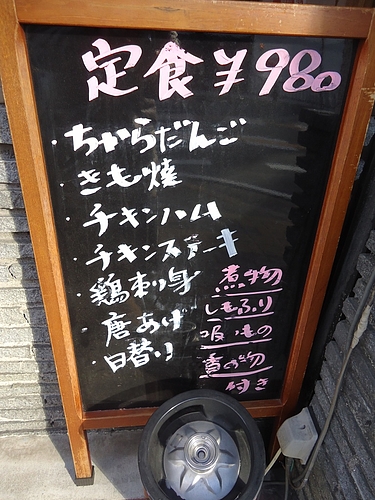 定食¥980
・ちからだんご
・きも焼
・チキンハム
・チキンステーキ
・鶏刺り身
・唐あげ
・日替り
煮物
しもふり
吸いもの
香の物
付き